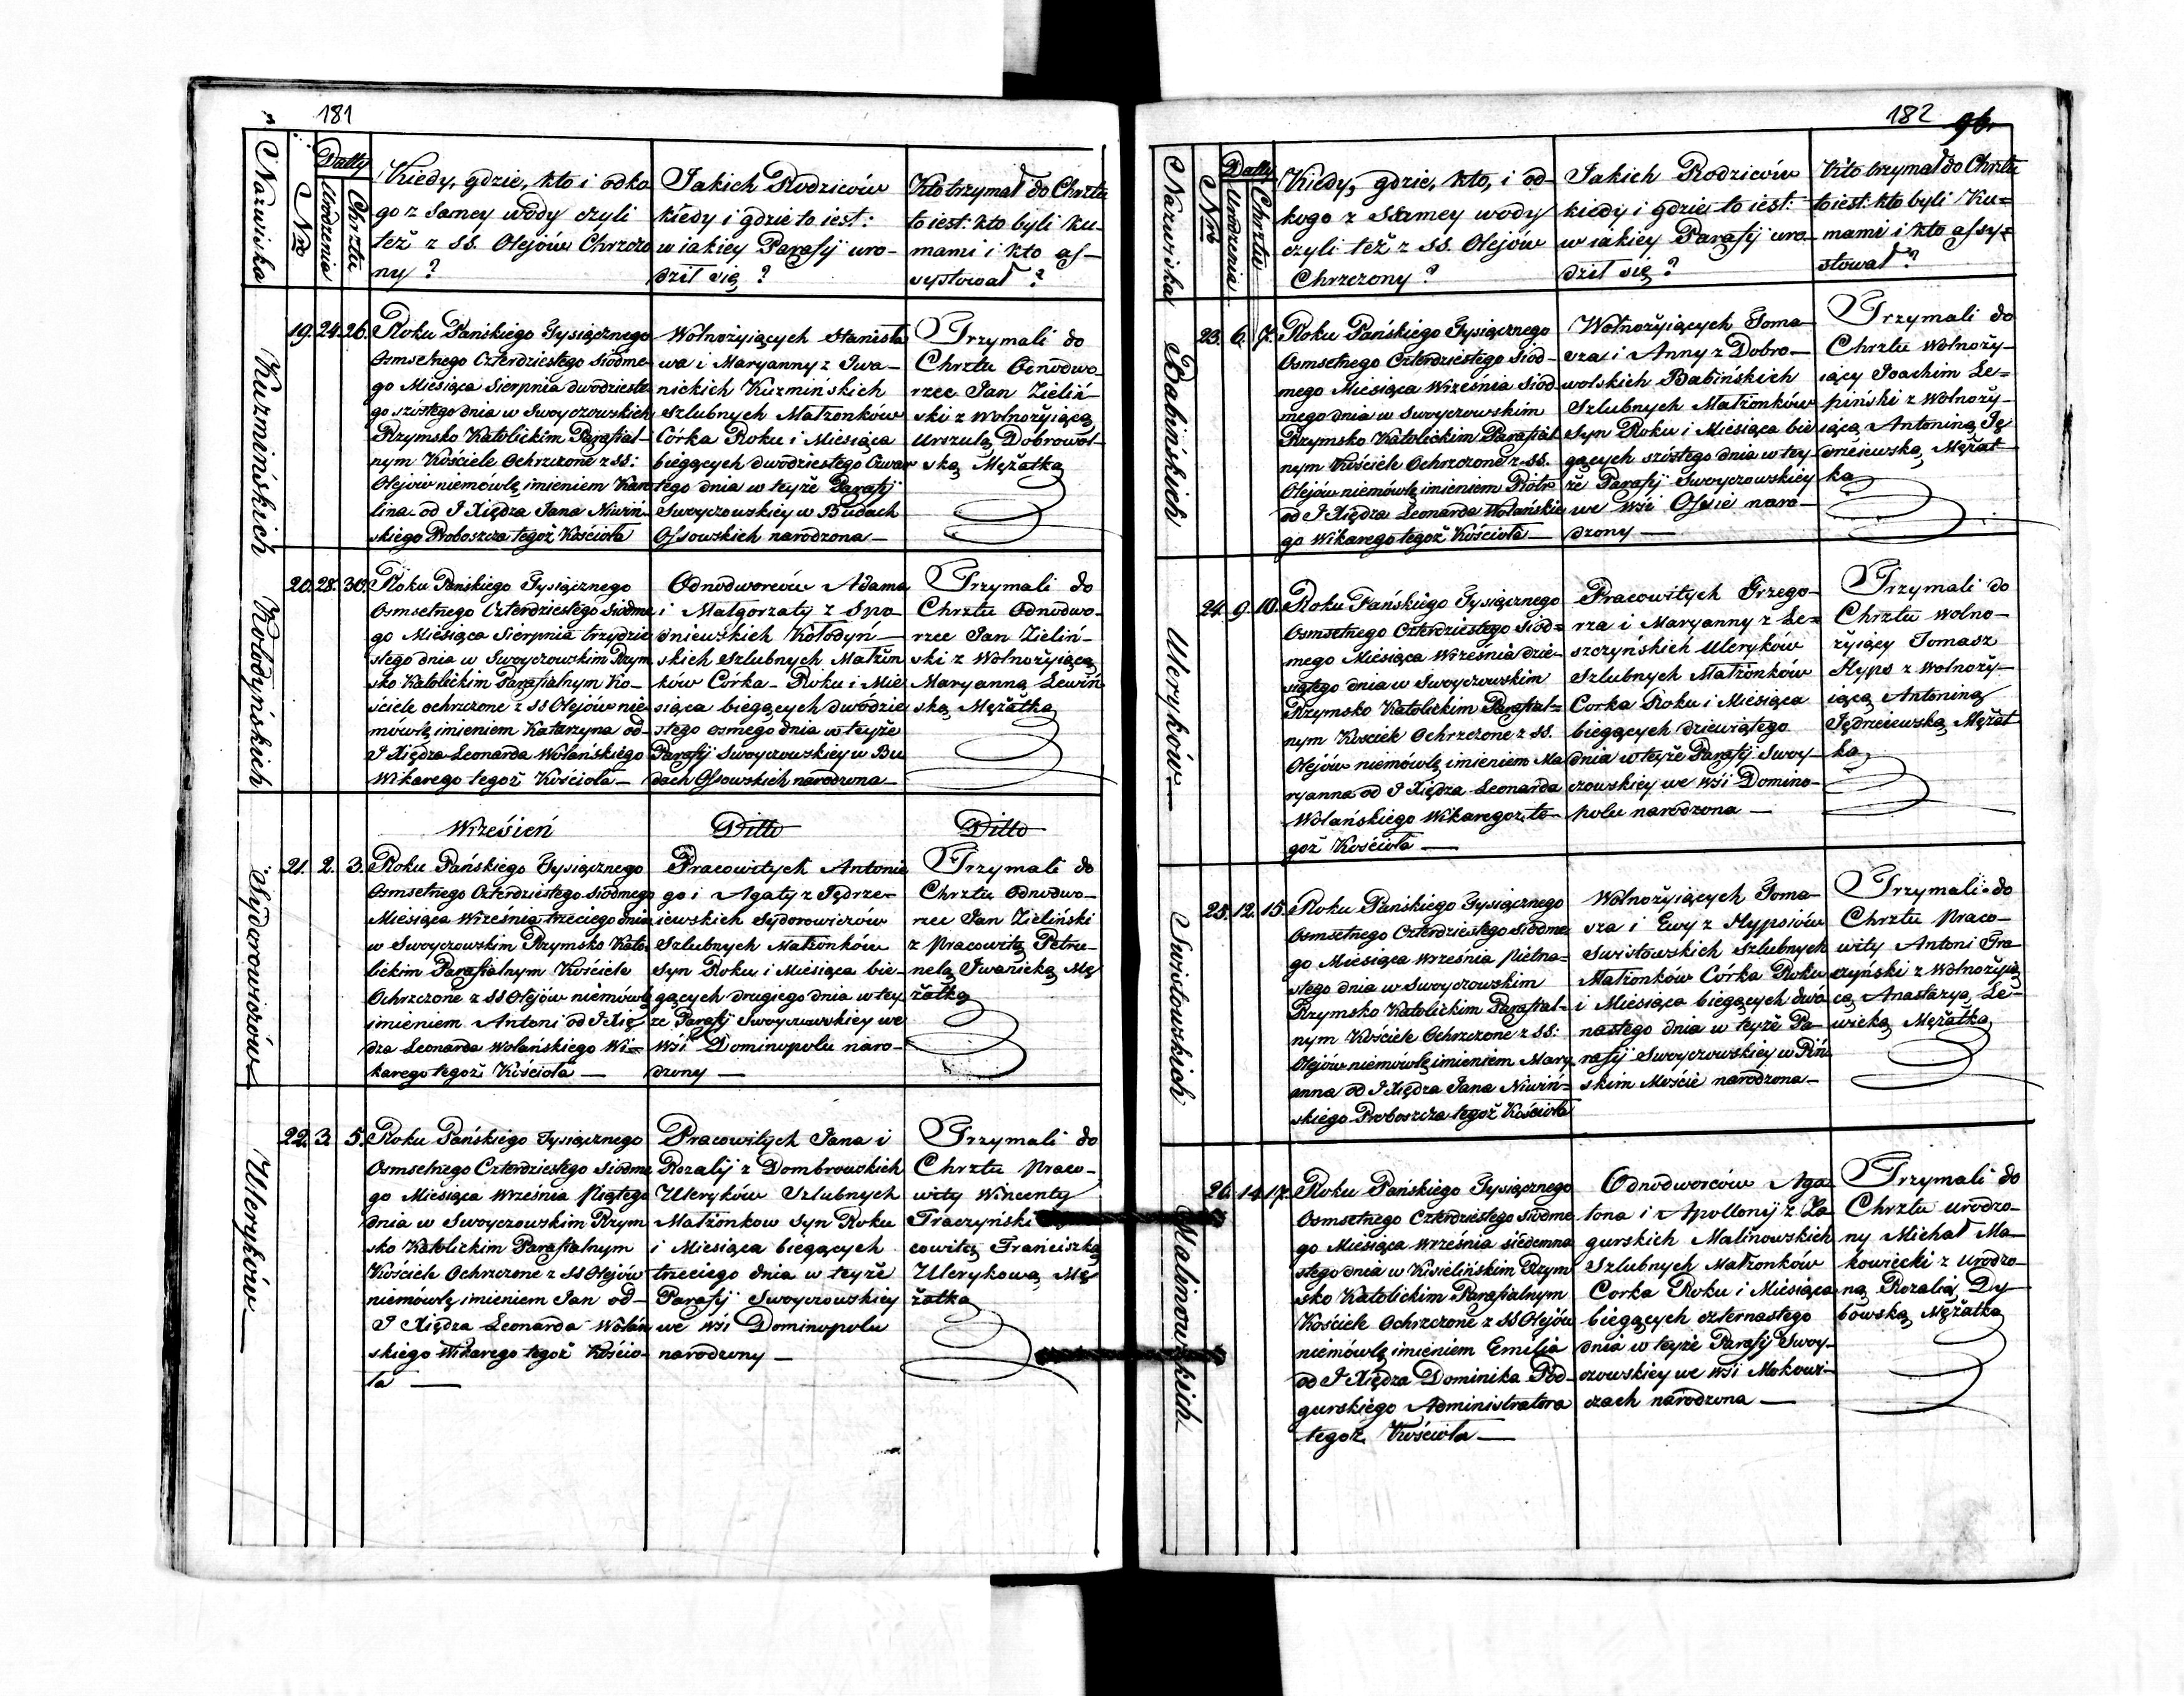 181
Nazwiska
Nro
Datty
Urodzenia
Chrztu
Kiedy, gdzie, kto i odko
go z Samey wody czyli
też z SS. Olejów Chrzczo
ny ?
Jakich Rodziców
kiedy i gdzie to iest:
w iakiey Parafij uro-
dził się ?
Kto trzymał do Chrztu
to iest: kto byli Ku-
mami i kto as-
systował ?
Kuzmińskich
19. 24. 26.
Roku Pańskiego Tysiącznego
Osmsetnego Czterdziestego Siódme-
go Miesiąca Sierpnia dwódzieste-
go szóstego dnia w Swoyczowskich
Rzymsko Katolickim Parafial-
nym Kościele Ochrzczone z SS:
Olejów niemówlę imieniem Karo
lina od J Xiędza Jana Niwiń-
skiego Proboszcza tegoż Kościoła
Wolnożyiących Stanisła
wa i Maryanny z Iwa-
nickich Kuzmińskich
Szlubnych Małżonków
Córka Roku i Miesiąca
bieg̨ących dwódziestego Czwar
tego dnia w teyże Parafij
Swoyczowskiey w Budach
Ossowskich narodzona —
Trzymali do
Chrztu Odnodwo-
rzec Jan Zieliń-
ski z Wolnożyiącą
Urszulą Dobrowol-
ską Mężatką
Kołodyńskich
20. 28. 30.
Roku Pańskiego Tysiącznego
Osmsetnego Czterdziestego Siódme
go Miesiąca Sierpnia trzydzie
stego dnia w Swoyczowskim Rzym
sko Katolickim Parafialnym Ko-
ściele ochrzczone z SS Olejów nie
mówlę imieniem Katarzyna od-
J Xiędza Leonarda Wolańskiego
Wikarego tegoż Kościoła —
Odnodworców Adama
i Małgorzaty z Spo-
dniewskich Kołodyń-
skich Szlubnych Małżon
ków Córka - Roku i Mie
siąca biegących dwódzie
stego osmego dnia w teyże
Parafij Swoyczowskiey w Bu
dach Ossowskich narodzona —
Trzymali do
Chrztu Odnodwo-
rzec Jan Zieliń-
ski z Wolnożyiącą
Maryanną Lewiń
ską Mężatką
Wrzesień
Ditto
Ditto
Sydorowiczów
21. 2. 3.
Roku Pańskiego Tysiącznego
Osmsetnego Czterdziestego Siódmego
Miesiąca Września trzeciego dnia
w Swoyczowskim Rzymsko Kato-
lickim Parafialnym Kościele
Ochrzczone z SS Olejów niemówlę
imieniem Antoni od J Xię
dza Leonarda Wolańskiego Wi=
karego tegoż Kościoła —
Pracowitych Antonie
go i Agaty z Jędrze-
iewskich Sydorowiczow
Szlubnych Małżonków
Syn Roku i Miesiąca bie-
gących drugiego dnia w tey
że Parafij Swoyczowskiey we
Wsi Dominopolu naro-
dzony —
Trzymali do
Chrztu Odnodwo-
rzec Jan Zieliński
z pracowitą Petru-
nelą Iwanicką Mę
żatką
Uleryków
22. 3. 5.
Roku Pańskiego Tysiącznego
Osmsetnego Czterdziestego Siódme
go Miesiąca Września Piątego
dnia w Swoyczowskim Rzym
sko Katolickim Parafialnym
Kościele Ochrzczone z SS Olejów
niemówlę imieniem Jan od-
J Xiędza Leonarda Wolań
skiego Wikarego tegoż Kościo-
ła —
Pracowitych Jana i
Rozalij z Dombrowskich
Uleryków Szlubnych
Małżonkow Syn Roku
i Miesiąca biegących
trzeciego dnia w teyże
Parafij Swoyczowskiey
we Wsi Dominopolu
narodzony —
Trzymali do
Chrztu praco-
wity Wincenty
Traczyński
cowitą Franciszką
Ulerykową Mę
żatką
182
96.
Nazwiska
Nro
Datty
Urodzenia
Chrztu
Kiedy, gdzie, kto, i od-
kogo z Samey wody
czyli też z SS. Olejów
Chrzczony ?
Jakich Rodziców
kiedy i gdzie to iest:
w iakiey Parafij uro-
dził się ?
Kto trzymał do Chrztu
to iest: kto byli Ku=
mami i kto assy=
stował ?
Babińskich
23. 6. 7.
Roku Pańskiego Tysiącznego
Osmsetnego Czterdziestego Siód-
mego Miesiąca Września Siód
mego dnia w Swoyczowskim
Rzymsko Katolickim Parafial
nym Kościele Ochrzczone z SS.
Olejów niemówlę imieniem Piotr
od J Xiędza Leonarda Wolańskie
go Wikarego tegoż Kościoła —
Wolnożyiących Toma-
sza i Anny z Dobro-
wolskich Babińskich
Szlubnych Małżonków
Syn Roku i Miesiąca bie
gących szóstego dnia w tey-
że Parafij Swoyczowskiey
we Wsi Ossie naro-
dzony —
Trzymali do
Chrztu Wolnoży-
iący Joachim Le=
piński z Wolnoży-
iącą Antoniną Ję
drzeiewską Mężat-
ką
Uleryków
24. 9. 10.
Roku Pańskiego Tysiącznego
Osmsetnego Czterdziestego Siód=
mego Miesiąca Września dzie-
siątego dnia w Swoyczowskim
Rzymsko Katolickim Parafial=
nym Kosciele Ochrzczone z SS.
Olejów niemówlę imieniem Ma
ryanna od J Xiędza Leonarda
Wolańskiego Wikarego te-
goż Kościoła —
Pracowitych Grzego-
rza i Maryanny z Le=
szczyńskich Uleryków
Szlubnych Małżonków
Corka Roku i Miesiąca
biegących dziewiątego
dnia w teyże Parafij Swoy-
czowskiey we Wsi Domino-
polu narodzona —
Trzymali do
Chrztu Wolno-
żyiący Tomasz
Hyps z Wolnoży-
iącą Antoniną
Jędrzeiewską Mężat
ką
Swistowskich
25. 12. 15.
Roku Pańskiego Tysiącznego
Osmsetnego Czterdziestego Siódme
go Miesiąca Września Pietna-
stego dnia w Swoyczowskim
Rzymsko Katolickim Parafial-
nym Kościele Ochrzczone z SS:
Olejów niemówlę imieniem Mary
anna od J Xiędza Jana Niwiń=
skiego Proboszcza tegoż Kościoła
Wolnożyiących Toma-
sza i Ewy z Hypsiów
Swistowskich Szlubnych
Małżonków Córka Roku
i Miesiąca biegących dwó
nastego dnia w teyże Pa-
rafij Swoyczowskiey w Piń
skim Moście narodzona —
Trzymali do
Chrztu praco-
wity Antoni Tra
czyński z Wolnożyią
cą Anastazyą Le-
wicką Mężatką
Malinowskich
26. 14. 17.
Roku Pańskiego Tysiącznego
Osmsetnego Czterdziestego Siódme
go Miesiąca Września siedemna
stego dnia w Kisielińskim Rzym
sko Katolickim Parafialnym
Kościele Ochrzczone z SS Olejów
niemówlę imieniem Emilia
od J Xiędza Dominika Pod-
gurskiego Administratora
tegoż Kościoła —
Odnodworców Aga
tona i Apollonij z Za-
gurskich Malinowskich
Szlubnych Małżonków
Corka Roku i Miesiąca
biegących czternastego
dnia w teyże Parafij Swoy-
czowskiey we Wsi Mokowi-
czach narodzona —
Trzymali do
Chrztu urodzo-
ny Michał Ma-
kowiecki z Urodzo-
ną Rozalią Dy
bowską Mężatką